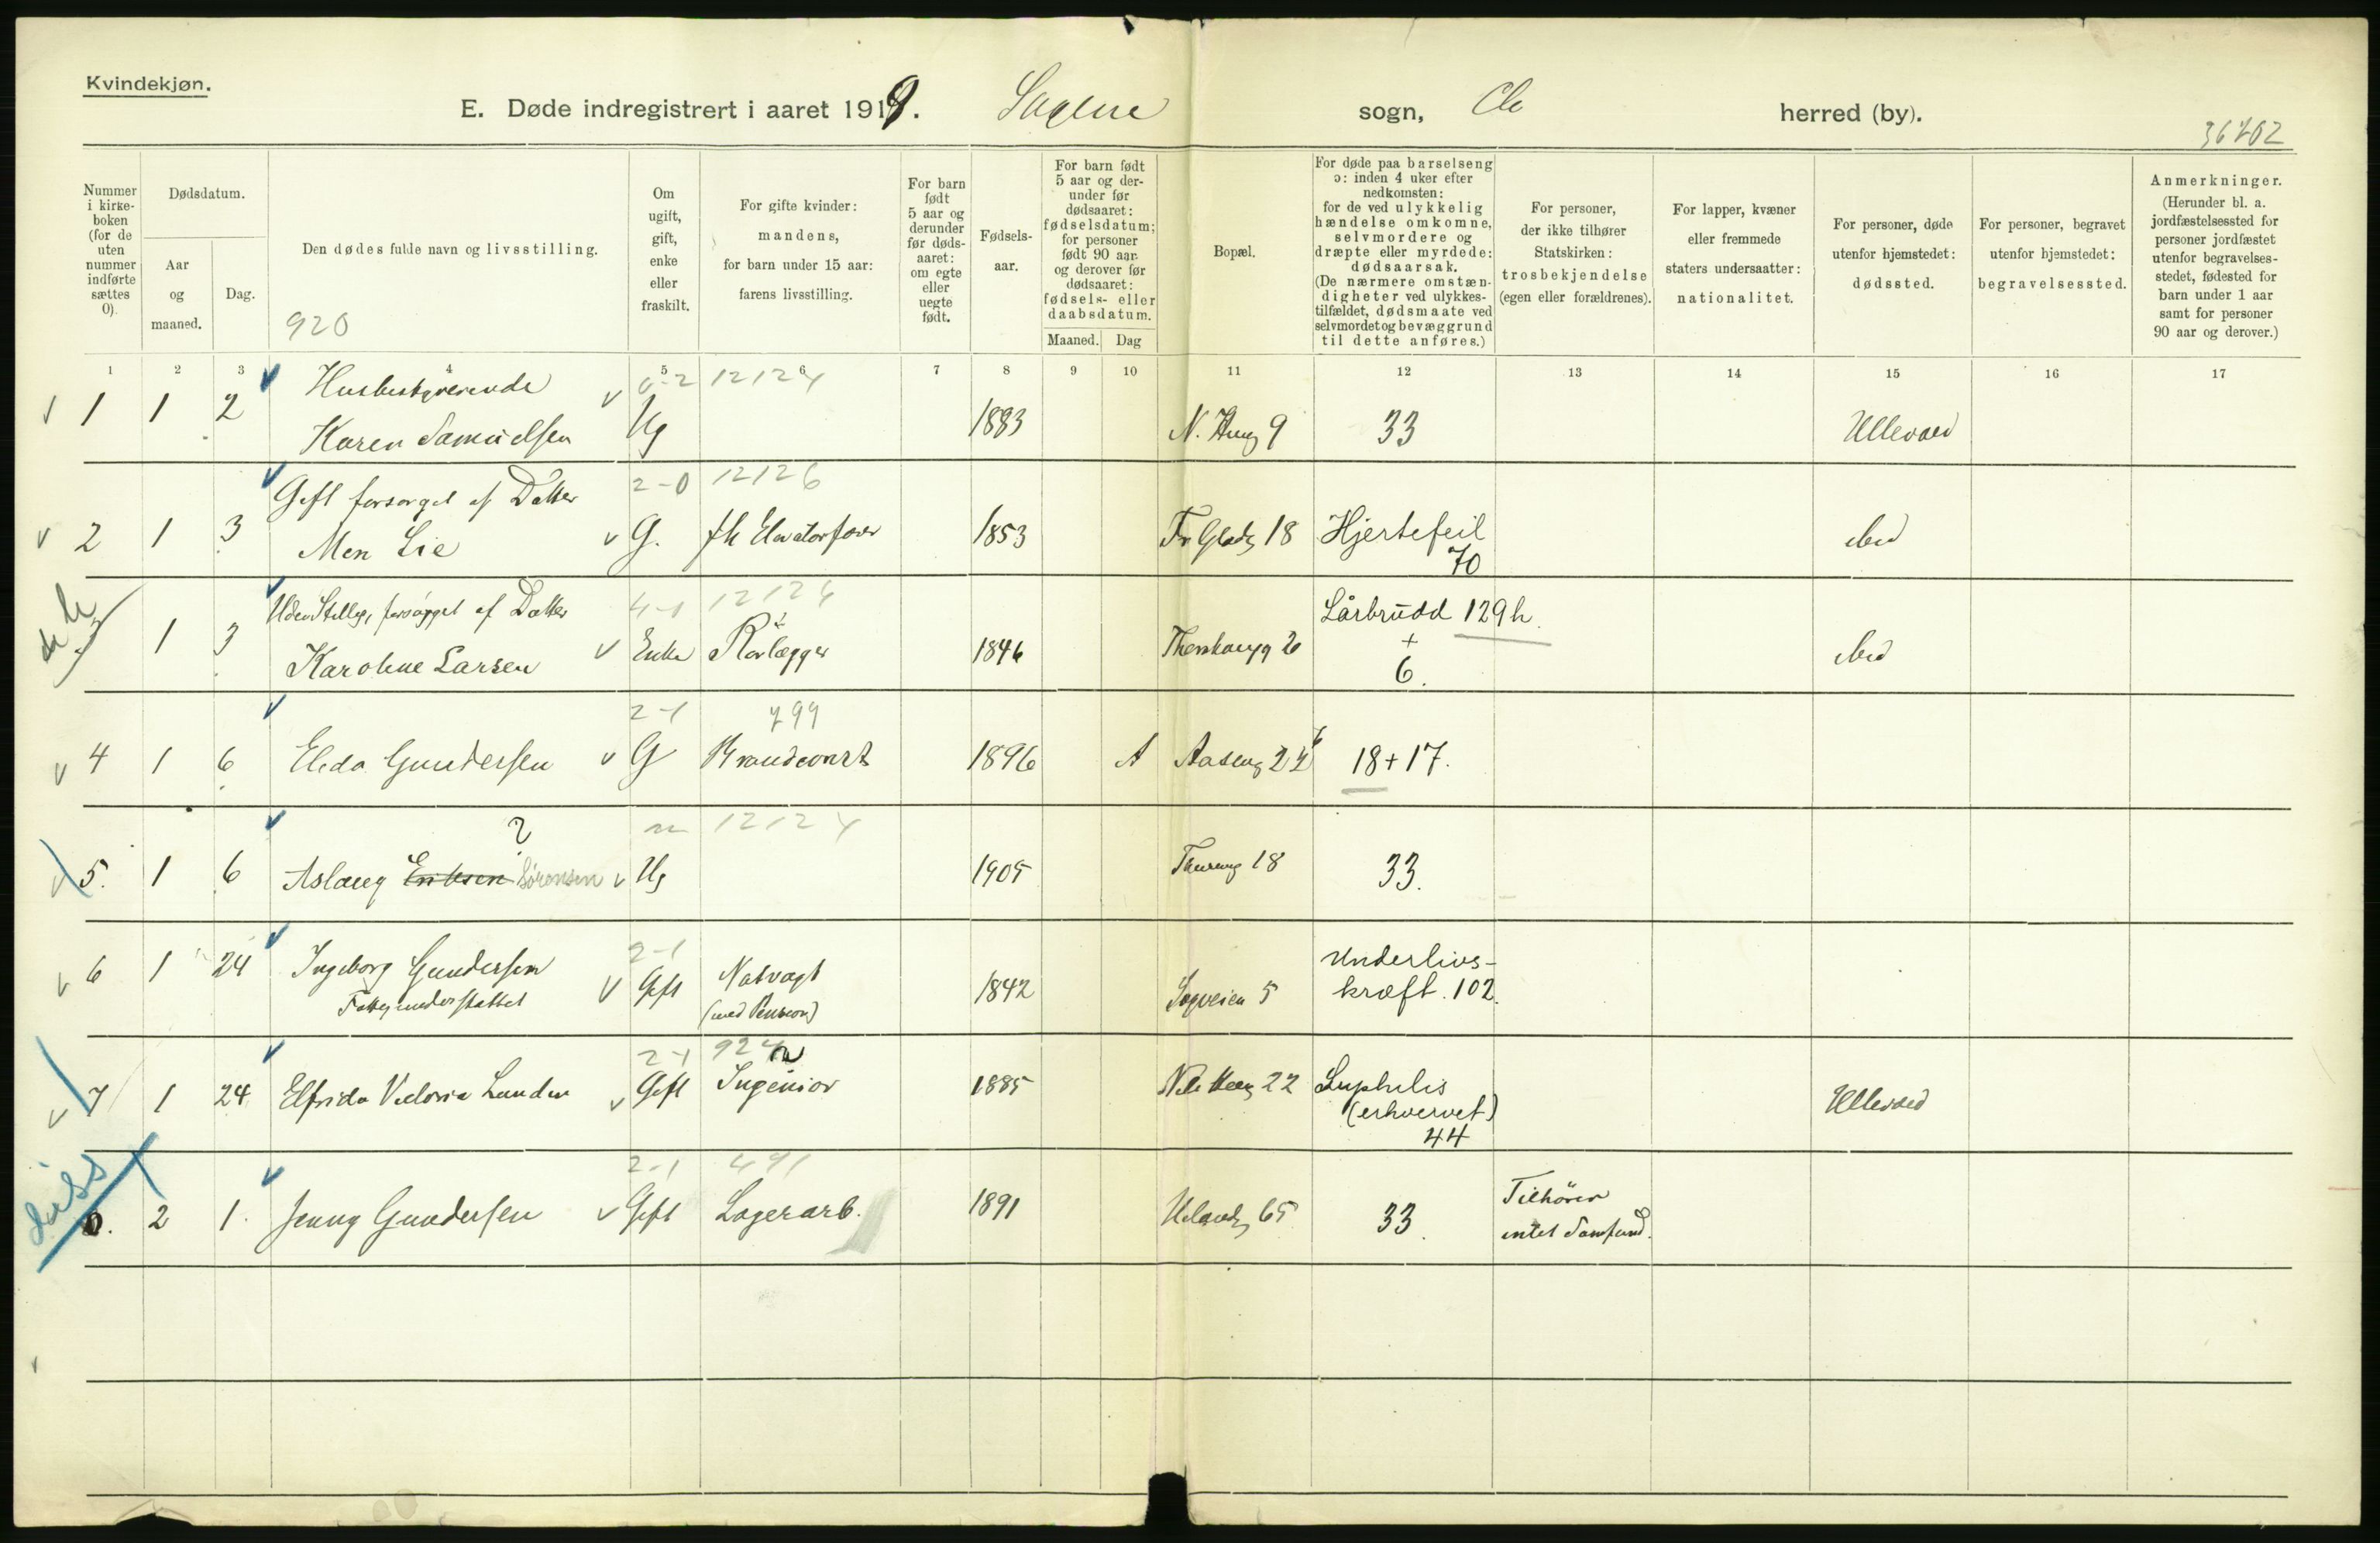 Kvindekjøn.
E. Døde indregistrert i aaret 1919. Sagene sogn, herred (by).
36702
Nummer i kirke-boken (for de uten nummer indførte sættes 0).
Dødsdatum.
Aar og maaned.
Dag.
Den dødes fulde navn og livsstilling.
920
Om ugift, gift, enke eller fraskilt.
For gifte kvinder: mandens, for barn under 15 aar: farens livsstilling.
For barn født 5 aar og derunder før døds-aaret: om egte eller uegte født.
Fødsels-aar.
For barn født 5 aar og der-under før dødsaaret: fødselsdatum; for personer født 90 aar og derover før dødsaaret: fødsels- eller daabsdatum.
Maaned. Dag
Bopæl.
For døde paa barselseng ɔ: inden 4 uker efter nedkomsten: for de ved ulykkelig hændelse omkomne, selvmordere og dræpte eller myrdede: dødsaarsak. (De nærmere omstæn-digheter ved ulykkes-tilfældet, dødsmaate ved selvmordet og bevæggrund til dette anføres.)
For personer, der ikke tilhører Statskirken: trosbekjendelse (egen eller forældrenes).
For lapper, kvæner eller fremmede staters undersaatter: nationalitet.
For personer, døde utenfor hjemstedet: dødssted.
For personer, begravet utenfor hjemstedet: begravelsessted.
Anmerkninger. (Herunder bl. a. jordfæstelsessted for personer jordfæstet utenfor begravelses-stedet, fødested for barn under 1 aar samt for personer 90 aar og derover.)
1 2 3 4 5 6 7 8 9 10 11 12 13 14 15 16 17
Husbestyrerinde 0-2 12124
1 1 2 Karen Samuelsen Ug 1883 9 33 Ullevaal
Gift forsørget af Datter 2-0 12126
2 1 3 Lie G. 1853 18 Hjertefeil 70 ibid
Uden Stilling, forsørget af Datter 4-1 12124
1 3 Karoline Larsen Enke Rørlægger 1846 Lårbrudd 129h + 6. ibid
2-1 799
4 1 6 Elida Gundersen G Brandconst 1896 A Aaseng 18+17.
? 12124
5. 1 6 Aslaug Eriksen Sørensen Ug 1905 18 33.
2-1
6 1 24 Ingeborg Gundersen Gift Natvagt 1842 Sagveien 5 Underlivs-
Fattigunderstøttet (med Pension) kræft. 102.
2-1 924
7 1 24 Elfrida Victoria Lunder Gift Ingeniør 1885 22 Syphilis Ullevaal
(erhvervet)
44
diss
2-1 491
0. 2 1. Jenny Gundersen Gift Lagerarb. 1891 Uelandsg 65 33. Tilhører
intet Samfund.